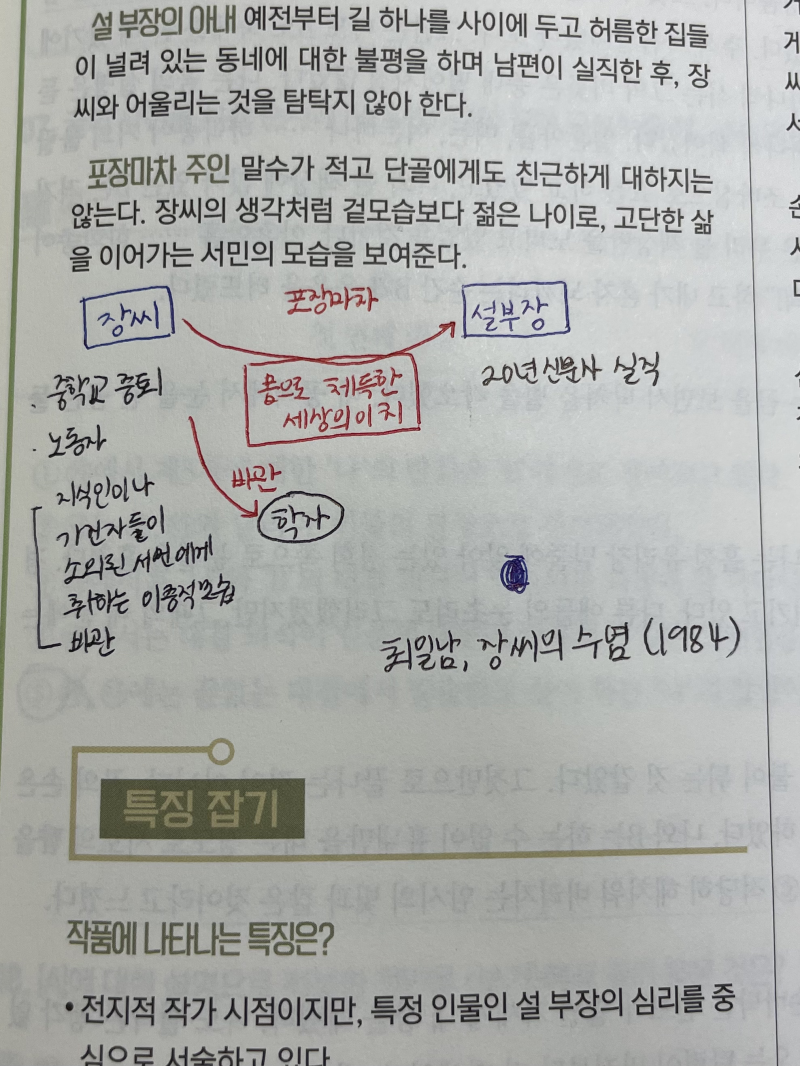 설 부장의 아내 예전부터 길 하나를 사이에 두고 허름한 집들
이 널려 있는 동네에 대한 불평을 하며 남편이 실직한 후, 장
씨와 어울리는 것을 탐탁지 않아 한다.
포장마차 주인 말수가 적고 단골에게도 친근하게 대하지는
않는다. 장씨의 생각처럼 겉모습보다 젊은 나이로, 고단한 삶
을 이어가는 서민의 모습을 보여준다.
장씨
포장마차
설부장
몸으로 체득한
세상의 이치
20년 신문사 실직
· 중학교 중퇴
· 노동자
비판
학자
지식인이나
가진자들이
소외된 서민에게
취하는 이중적 모습
비판
최일남, 장씨의 수염 (1984)
특징 잡기
작품에 나타나는 특징은?
• 전지적 작가 시점이지만, 특정 인물인 설 부장의 심리를 중
심으로 서술하고 있다